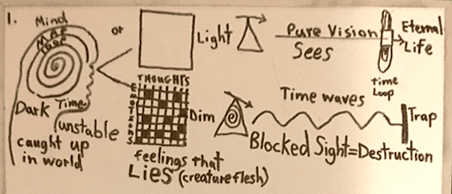 1.
Mind
MAZE
LOOP
Dark Time
(unstable
caught up
in world
or
Light
Pure Vision
Sees
Eternal
Life
Time
Loop
THOUGHTS
EMOTIONS
Dim
Time waves
Trap
Blocked Sight=Destruction
feelings that
Lies (creature flesh)